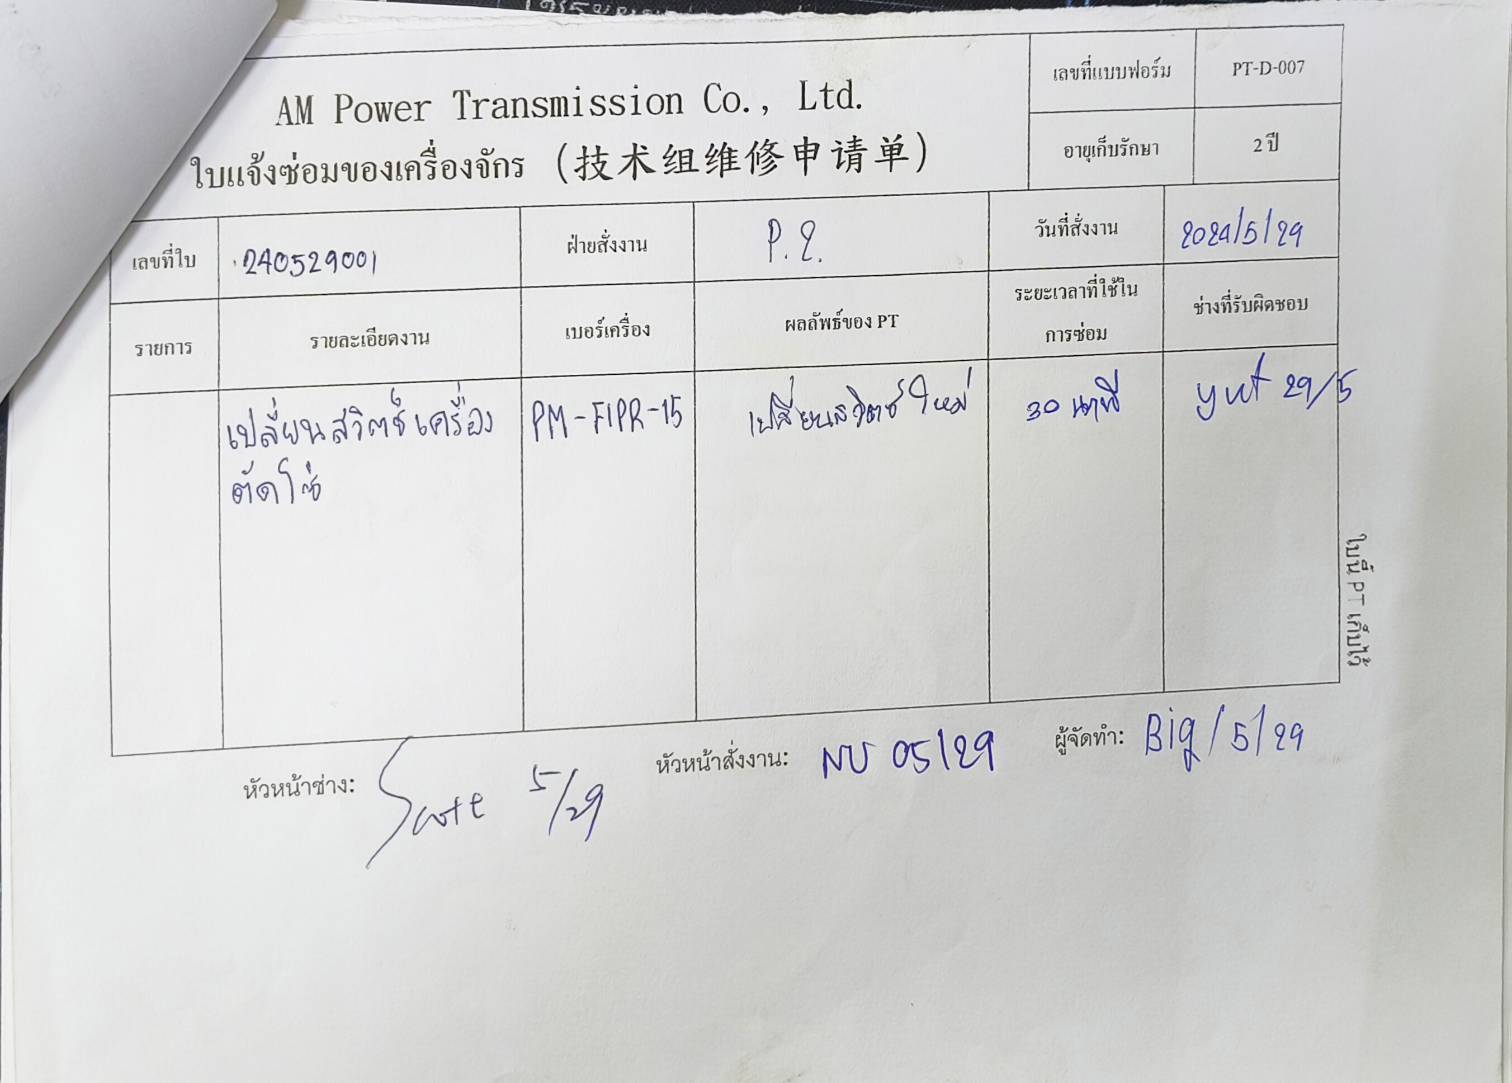 AM Power Transmission Co., Ltd.
ใบแจ้งซ่อมของเครื่องจักร (技术组维修申请单)
เลขที่แบบฟอร์ม PT-D-007
อายุเก็บรักษา 2 ปี
เลขที่ใบ 240529001 ฝ่ายสั่งงาน P.2. วันที่สั่งงาน 2024/5/29
รายการ รายละเอียดงาน เบอร์เครื่อง ผลลัพธ์ของ PT ระยะเวลาที่ใช้ใน
การซ่อม ช่างที่รับผิดชอบ
เปลี่ยนสวิตช์เครื่อง PM-FIPR-15 เปลี่ยนสวิตซ์ใหม่ 30 นาที yut 29/5
ตัดโซ่
ใบนี้ PT เก็บไว้
หัวหน้าช่าง: 5/29 หัวหน้าสั่งงาน: NU 05/29 ผู้จัดทำ: Big/5/29